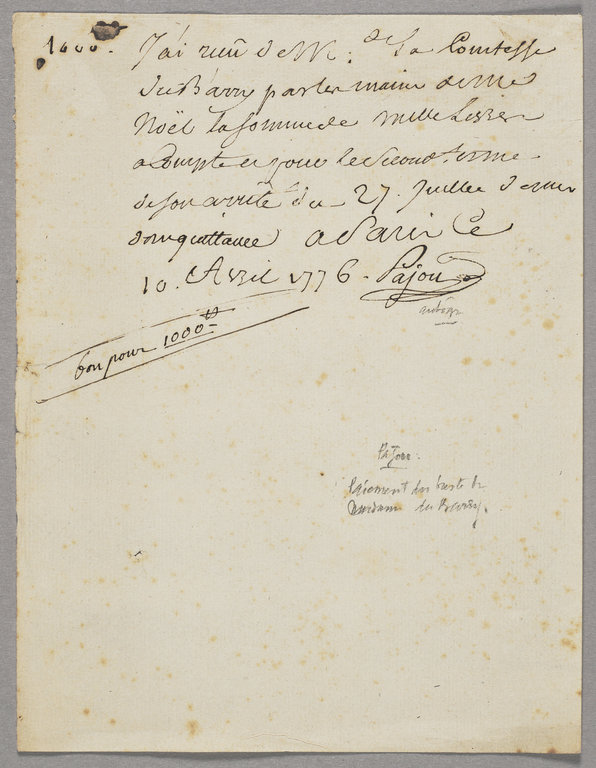 1000. J'ai reçu de Me: de la Comtesse
du Barry par les mains de Me
Noël la somme de mille livres
acompte et pour le second terme
de son arrêté du 27. Juillet dernier
dont quittance a Paris Ce
10. Avril 1776. Pajou
bon pour 1000tt
Pajou.
Paiement du buste de
Madame du Barry.